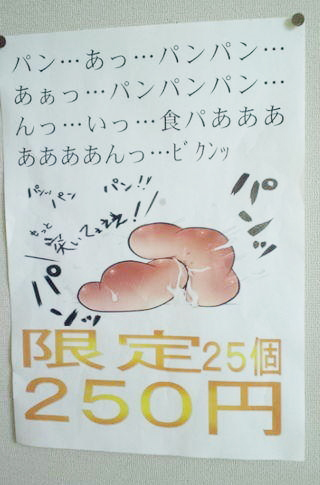 パン…あっ…パンパン…
あぁっ…パンパンパン…
んっ…いっ…食パあああ
ああああんっ…ﾋﾞｸﾝｯ
パンッ パン
パン!!
パンッ
もっと
パンッ
限定25個
250円